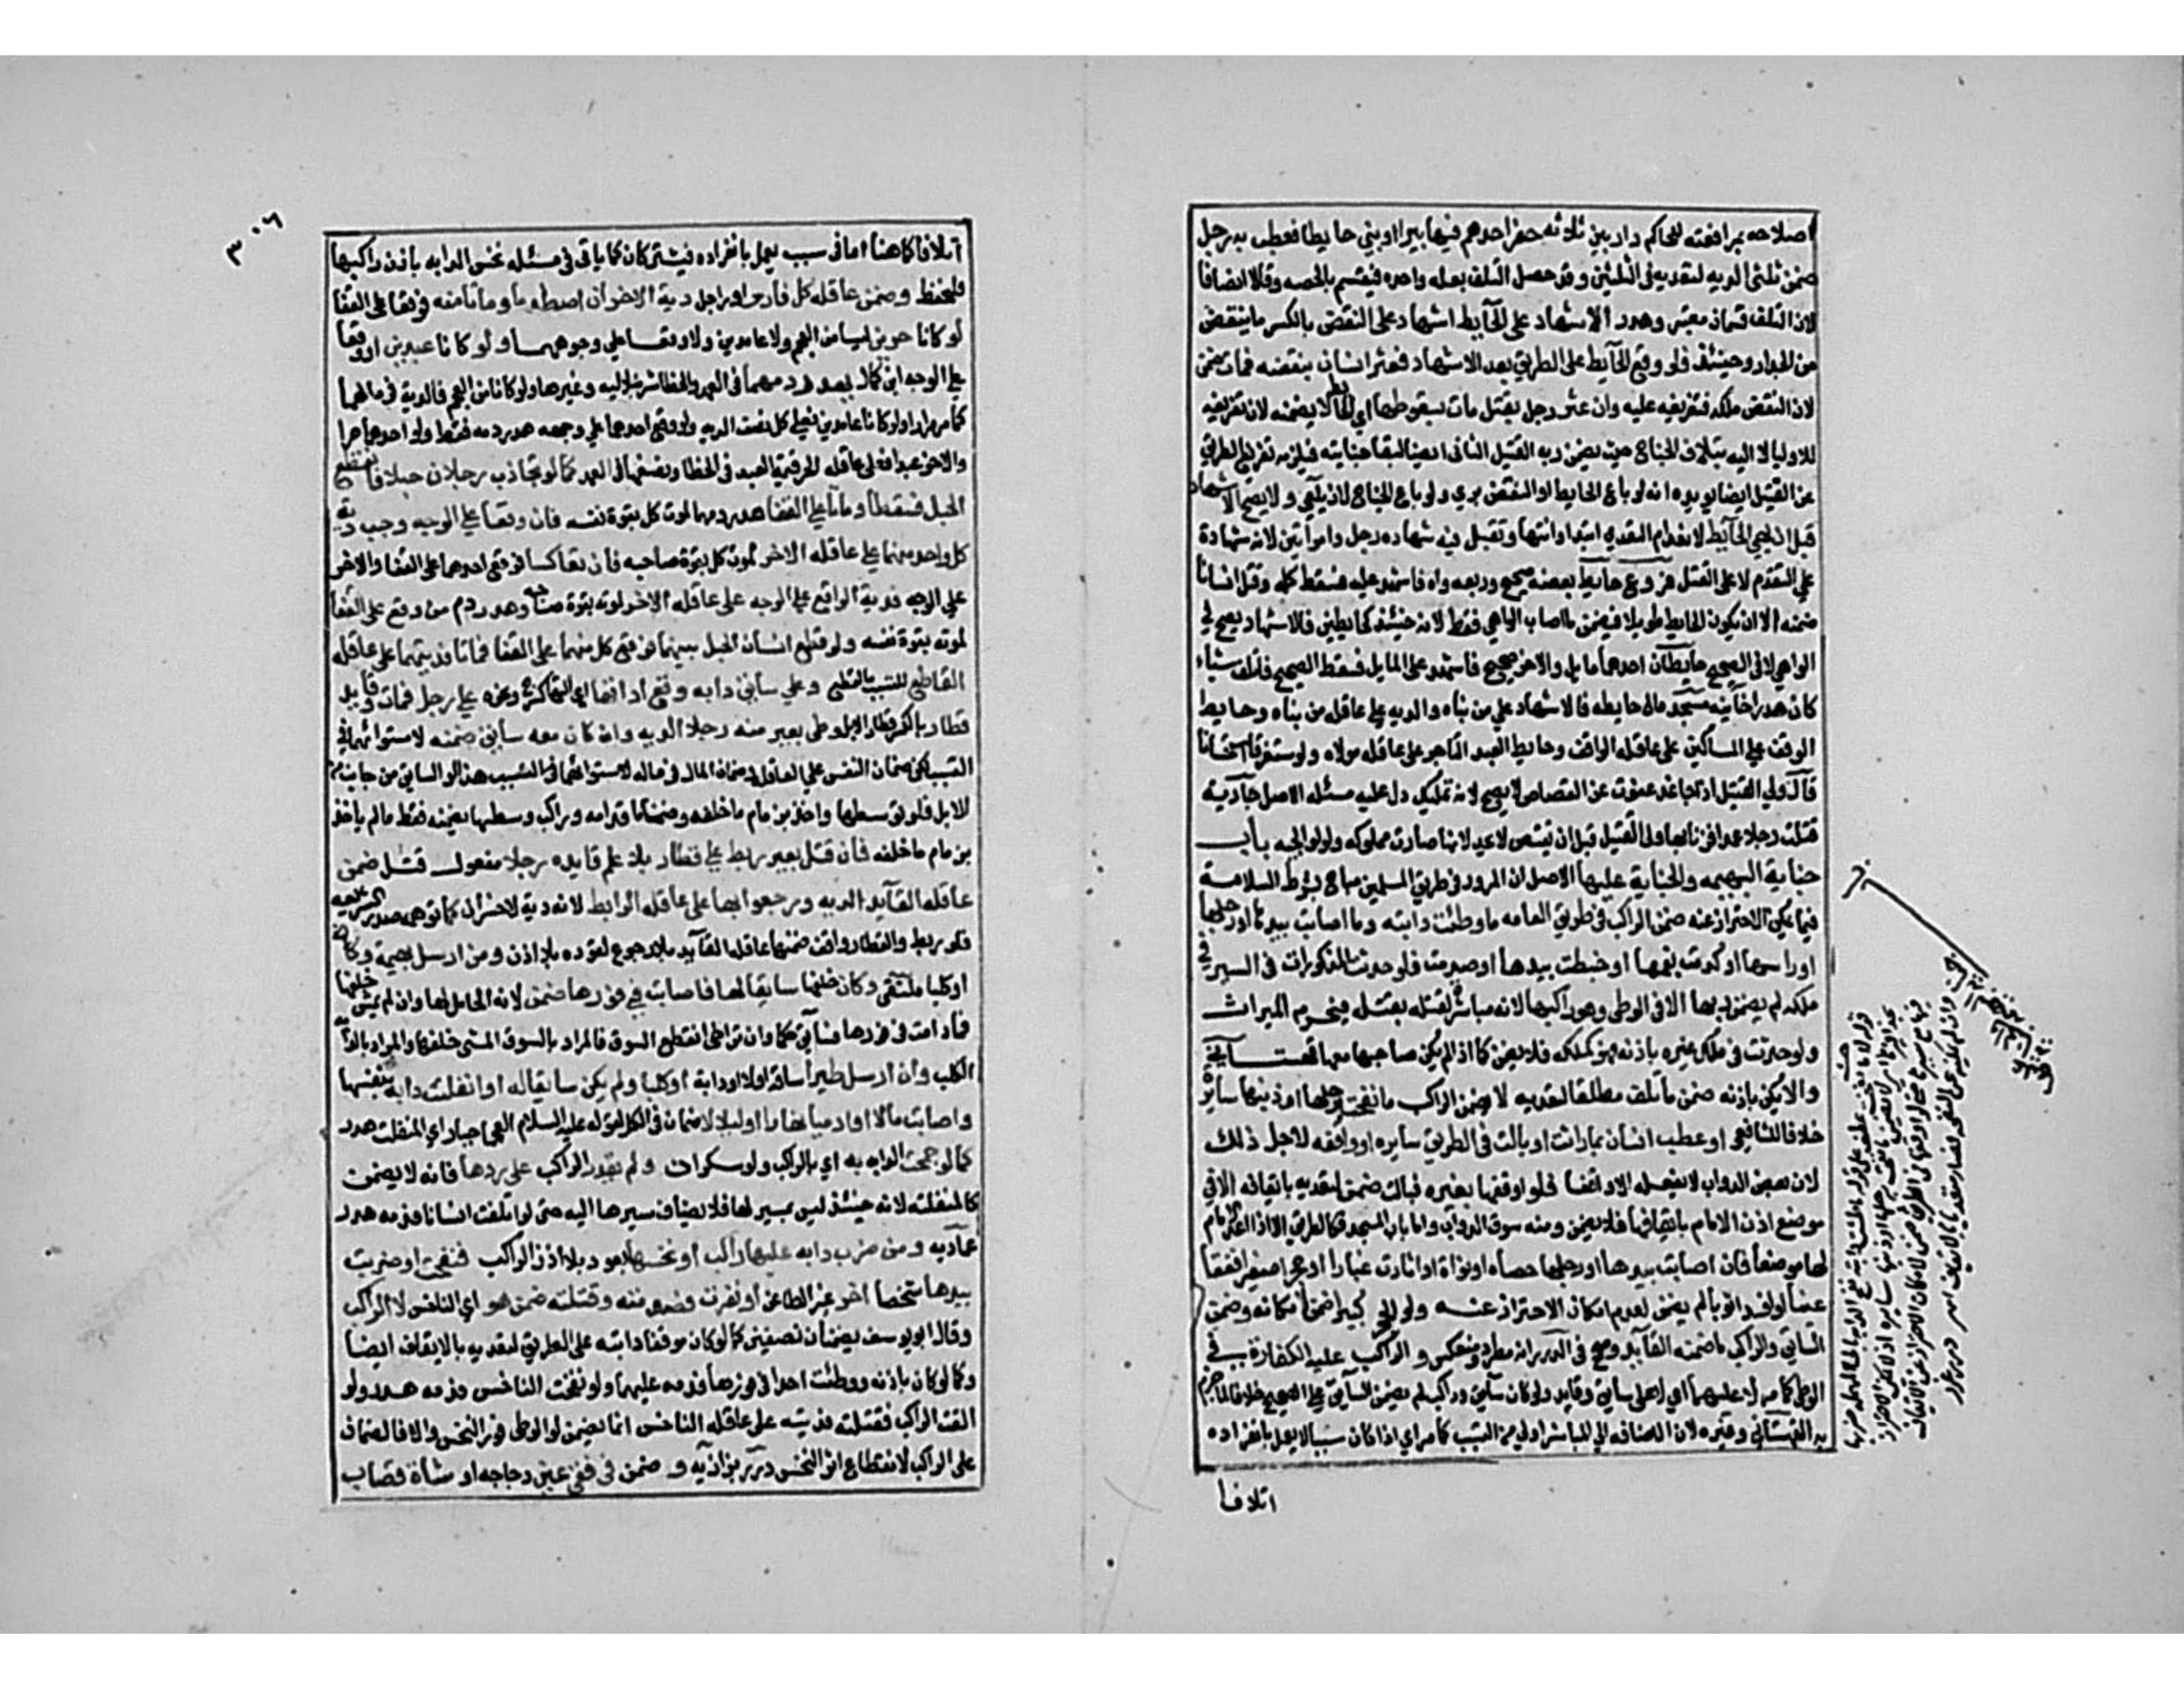 اصلاحه بمرافعته للحاكم دار بين ثلاثه حفر احدهم فيها بيرا او بني حايطا فعطب به رجل
ضمن ثلثي الديه لتعديه في الثلثين وقد حصل التلف بعله واحده فيقسم بالحصه وقالا انصافا
لان التلف قسمان معتبر وهدر الاشهاد على الحآيط اشهاد على النقض بالكسر ما ينقض
من الجدار وحينئذ فلو وقع الحآيط على الطريق بعد الاشهاد فعثر انسان بنقضه فمات ضمن
لان النقض ملكه فتفريغه عليه وان عثر رجل بقتيل مات بسقوطها اي الحايط لا يضمنه لان تفريغه
للاوليا لا اليه بخلاف الجناح حيث يضمن ربه القتيل الثاني ايضا لبقا جنايته فيلزمه تفريغ الطريق
عن القتيل ايضا يويده انه لو باع الحايط او النقض بري ولو باع الجناح لا زيلعي ولا يصح الاشهاد
قبل ان يهي الحآيط لانعدام التعدي ابتدا وانتها وتقبل فيه شهاده رجل وامراتين لانه شهادة
على التقدم لا على القتل فروع حايط بعضه صحيح وبعضه واه فاشهد عليه فسقط كله وقتل انسانا
ضمنه الا ان يكون الحايط طويلا فيضمن ما اصاب الواهي فقط لانه حينئذ كحايطين فالاشهاد يصح في
الواهي لا في الصحيح حايطان احدهما مايل والاخر صحيح فاشهد على المايل فسقط الصحيح فاتلف شياء
كان هدرا خانيه مسجد مال حايطه فالاشهاد على من بناه والديه على عاقله من بناه وحايط
الوقف على المساكين على عاقله الواقف وحايط العبد التاجر على عاقله مولاه ولو مستغرقا استحسانا
قال ولي القتيل
قتلت رجلا عمدا فزنا بها ولي القتيل قبل ان يقتص لا يحد لانها صارت مملوكه ولوالجيه باب
جناية البهيمه والجناية عليها الاصل ان المرور في طريق المسلمين مباح بشرط السلامة
فيما يمكن الاحتراز عنه ضمن الراكب في طريق العامه ما وطئت دابته وما اصابت بيدها او رجلها
او راسها او كدمت بفمها او خبطت بيدها او صدمت فلو حدثت المذكورات في السير في
ملكه لم يضمن ربها الا في الوطي وهو راكبها لانه مباشر لقتله بثقله فيحرم الميراث
ولو حدثت في ملك غيره باذنه فهو كملكه فلا يضمن كما اذا لم يكن صاحبها معها قهستاني
والا يكن باذنه ضمن ما تلف مطلقا لتعديه لا يضمن الراكب ما نفحت برجلها او ذنبها سايره
خلافا للشافعي او عطب انسان بما راثت او بالت في الطريق سايره او واقفه لاجل ذلك
لان بعض الدواب لا يفعله الا واقفا فلو اوقفها لغيره فبالت ضمن لتعديه بايقافه الا في
موضع اذن الامام بايقافها فلا يضمن ومنه سوق الدواب واما باب المسجد فكالطريق الا اذا اعد الامام
لها موضعا فان اصابت بيدها او رجلها حصاه او نواة او اثارت غبارا او حجرا صغيرا ففقا
عينا لم يضمن لعدم امكان الاحتراز عنه ولو الحجر كبيرا ضمن لامكانه وضمن
السائق والراكب ما ضمنه القآيد وصح في الدرر انه مطرد ومنعكس والراكب عليه الكفارة في
الوطي كما مر لا عليهما اي لا على سايق وقايد ولو كان سآيق وراكب لم يضمن السآيق على الصحيح خلافا لما جزم
به القهستاني وغيره لان الاضافه الى المباشر اولى من السبب كما مر اي اذا كان سببا لا يعمل بانفراده
اتلافا
٣٠٦
اتلافا كما هنا اما في سبب يعمل بانفراده فيشتركان كما ياتي في مسئله نخس الدابه باذن راكبها
فليحفظ وضمن عاقله كل فارس او راجل دية الاخر ان اصطدما وماتا منه فوقعا على القفا
لو كانا حرين ليسا من العجم ولا عامدين ولا وقعا على وجوههما ولو كانا عبدين او وقعا
على الوجه يهدر دمهما في العمد والخطا شرنبلاليه وغيرها ولو كانا من العجم فالدية في مالهما
كما مر مرارا ولو كانا عامدين فعلى كل نصف الديه ولو وقع احدهما على وجهه هدر دمه فقط ولو احدهما حرا
والاخر عبدا فعلى عاقله الحر قيمة العبد في الخطا ونصفها في العمد كما لو تجاذب رجلان حبلا فانقطع
الحبل فسقطا وماتا على القفا هدر دمهما لموت كل بقوة نفسه فان وقعا على الوجه وجب دية
كل واحد منهما على عاقله الاخر لموت كل بقوة صاحبه فان تعاكسا فوقع احدهما على القفا والاخر
على الوجه فدية الواقع على الوجه على عاقله الاخر لموته بقوة صاحبه وهدر دم من وقع على القفا
لموته بقوة نفسه ولو قطع انسان الحبل بينهما فوقع كل منهما على القفا فماتا فديتهما على عاقله
القاطع لتسببه بالقطع وعلى سائق دابه وقع اداتها اي التها كسرج ونحوه على رجل فمات وقايد
قطار بالكسر قطار الابل وطي بعير منه رجلا الديه وان كان معه سائق ضمنه لاستوائهما في
التسبب لكن ضمان النفس على العاقله وضمان المال في ماله لاستوائهما في التسبب هذا لو السايق من جانب من
الابل فلو توسطها واخذ بزمام ما خلفه وضمنا ما قدامه وراكب وسطها يضمنه فقط ما لم ياخذ
بزمام ما خلفه فان قتل بعير ربط على قطار بلا علم قايده رجلا مفعول قتل ضمن
عاقله القآيد الديه ورجعوا بها على عاقله الرابط لانه دية لا خسران كما توهمه صدر الشريعه
فلو ربط والقطار واقف ضمنها عاقله القآيد بلا رجوع لقوده بلا اذن ومن ارسل بهيمة وكان
او كلبا ملتقى وكان خلفها سايقا لها فاصابت في فورها ضمن لانه الحامل لها وان لم يمش خلفها
فما دامت في فورها فسآيق حكما وان تراخى انقطع السوق فالمراد بالسوق المشي خلفها والمراد بالدابه
الكلب وان ارسل طيرا ساقه اولا او دابة او كلبا ولم يكن سايقا له او انفلتت دابة بنفسها
واصابت مالا او ادميا نهارا او ليلا لا ضمان في الكل لقوله عليه السلام العجما جبار اي المنفلته هدر
كما لو جمحت الدابه به اي بالراكب ولو سكران ولم يقدر الراكب على ردها فانه لا يضمن
كالمنفلته لانه حينئذ ليس بمسير لها فلا يضاف سيرها اليه حتى لو اتلفت انسانا فدمه هدر
عماديه ومن ضرب دابه عليها راكب او نخسها بعود بلا اذن الراكب فنفحت او ضربت
بيدها شخصا اخر غير الطاعن او نفرت فصدمته وقتلته ضمن هو اي الناخس لا الراكب
وقال ابو يوسف يضمنان نصفين كما لو كان موقفا دابته على الطريق لتعديه بالايقاف ايضا
وكما لو كان باذنه ووطئت احدا في فورها فدمه عليهما ولو نفحت الناخس فدمه هدر ولو
القت الراكب فقتلته فديته على عاقله الناخس انما يضمن لو الوطي فور النخس والا فالضمان
على الراكب لانقطاع اثر النخس درر بزازيه وضمن في فقئ عين دجاجه او شاة قصاب